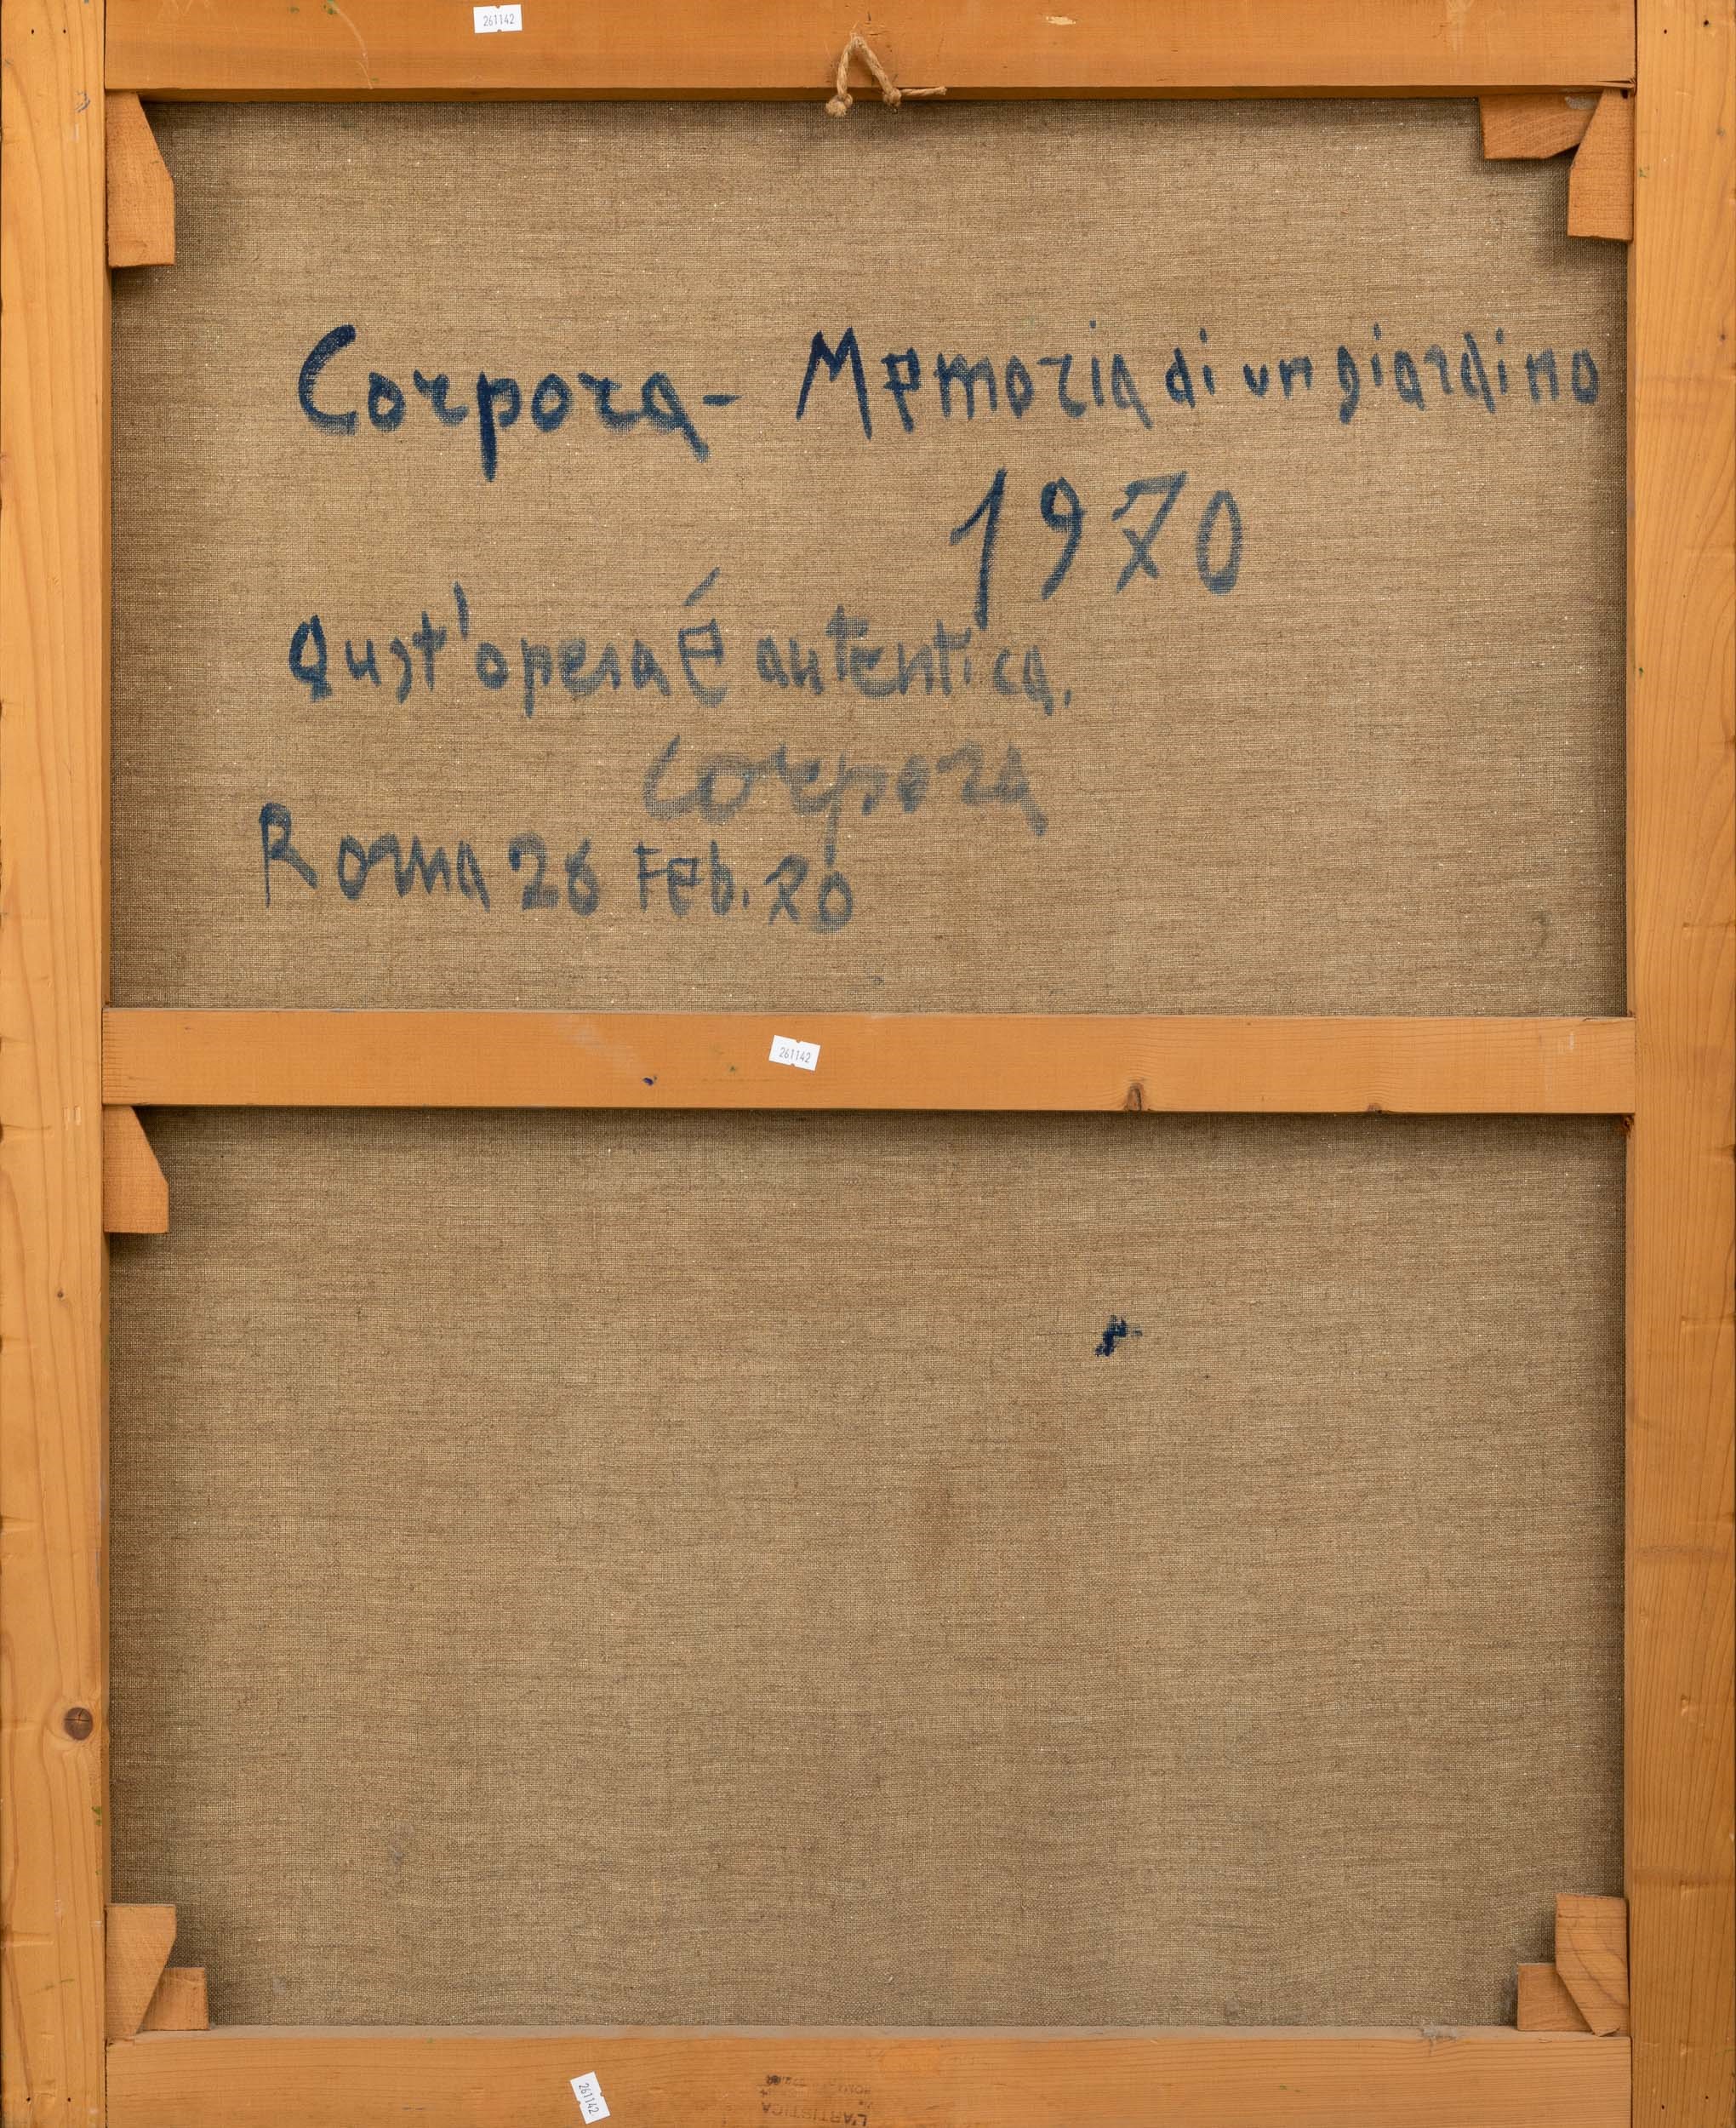 261142
Corpora - Memoria di un giardino
1970
Qust'opera é autentica.
Corpora
Roma 26 Feb. 70
261142
261142
L'ARTISTICA